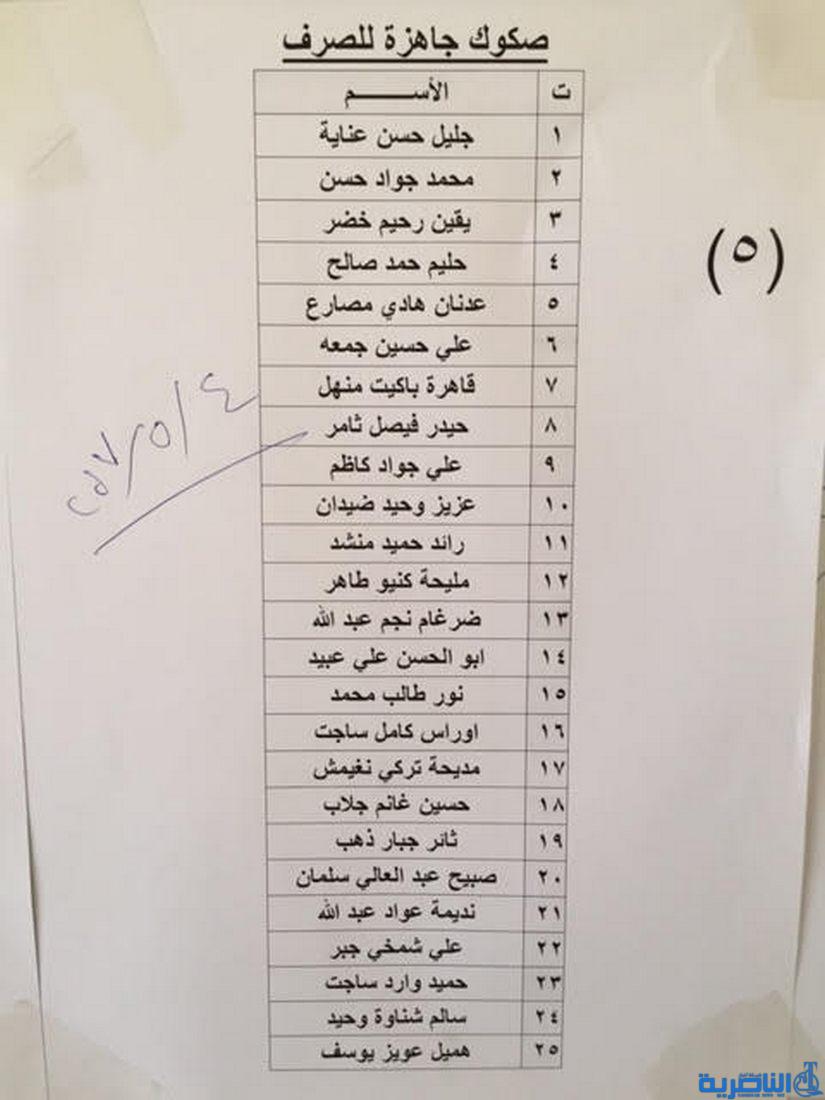 صكوك جاهزة للصرف
ت الأســـــم
١ جليل حسن عناية
٢ محمد جواد حسن
٣ يقين رحيم خضر
٤ حليم حمد صالح
٥ عدنان هادي مصارع
٦ علي حسين جمعه
٧ قاهرة باكيت منهل
٨ حيدر فيصل ثامر
٩ علي جواد كاظم
١٠ عزيز وحيد ضيدان
١١ رائد حميد منشد
١٢ مليحة كنيو طاهر
١٣ ضرغام نجم عبد الله
١٤ ابو الحسن علي عبيد
١٥ نور طالب محمد
١٦ اوراس كامل ساجت
١٧ مديحة تركي نغيمش
١٨ حسين غانم جلاب
١٩ ثائر جبار ذهب
٢٠ صبيح عبد العالي سلمان
٢١ نديمة عواد عبد الله
٢٢ علي شمخي جبر
٢٣ حميد وارد ساجت
٢٤ سالم شناوة وحيد
٢٥ هميل عويز يوسف
(٥)
٤/٥/٢٠١٧
الناصرية